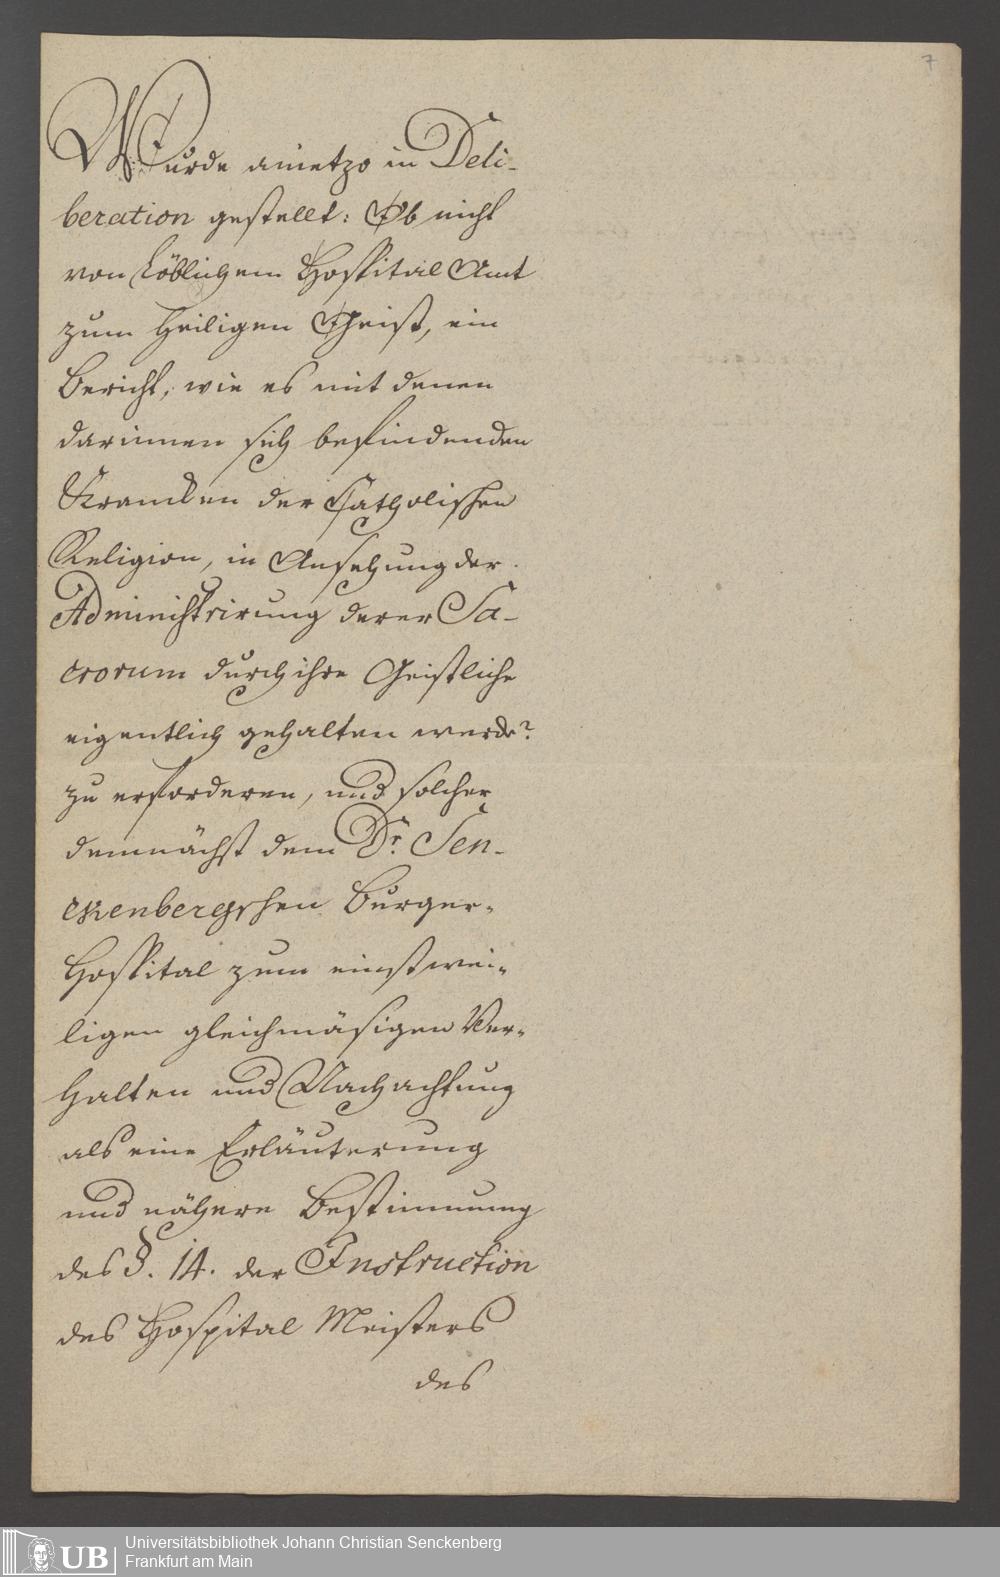 7
Wurde anietzo in Deli-
beration gestellt: Ob nicht
von Löblichem Hospital Amt
zum Heiligen Geist, ein
Bericht, wie es mit denen
darinnen sich befindenden
Krancken der Catholischen
Religion, in Ansehung der
Administrirung derer Sa-
crorum durch ihre Geistliche
eigentlich gehalten werde?
zu erforderen, und solcher
demnächst dem Dr. Sen-
ckenbergschen Burger-
Hospital zum einstwei-
ligen gleichmäsigen Ver-
halten und Nachachtung
als eine Erläuterung
und nähere Bestimmung
des §. 14. der Instruction
des Hospital Meisters
des
UB
Universitätsbibliothek Johann Christian Senckenberg
Frankfurt am Main